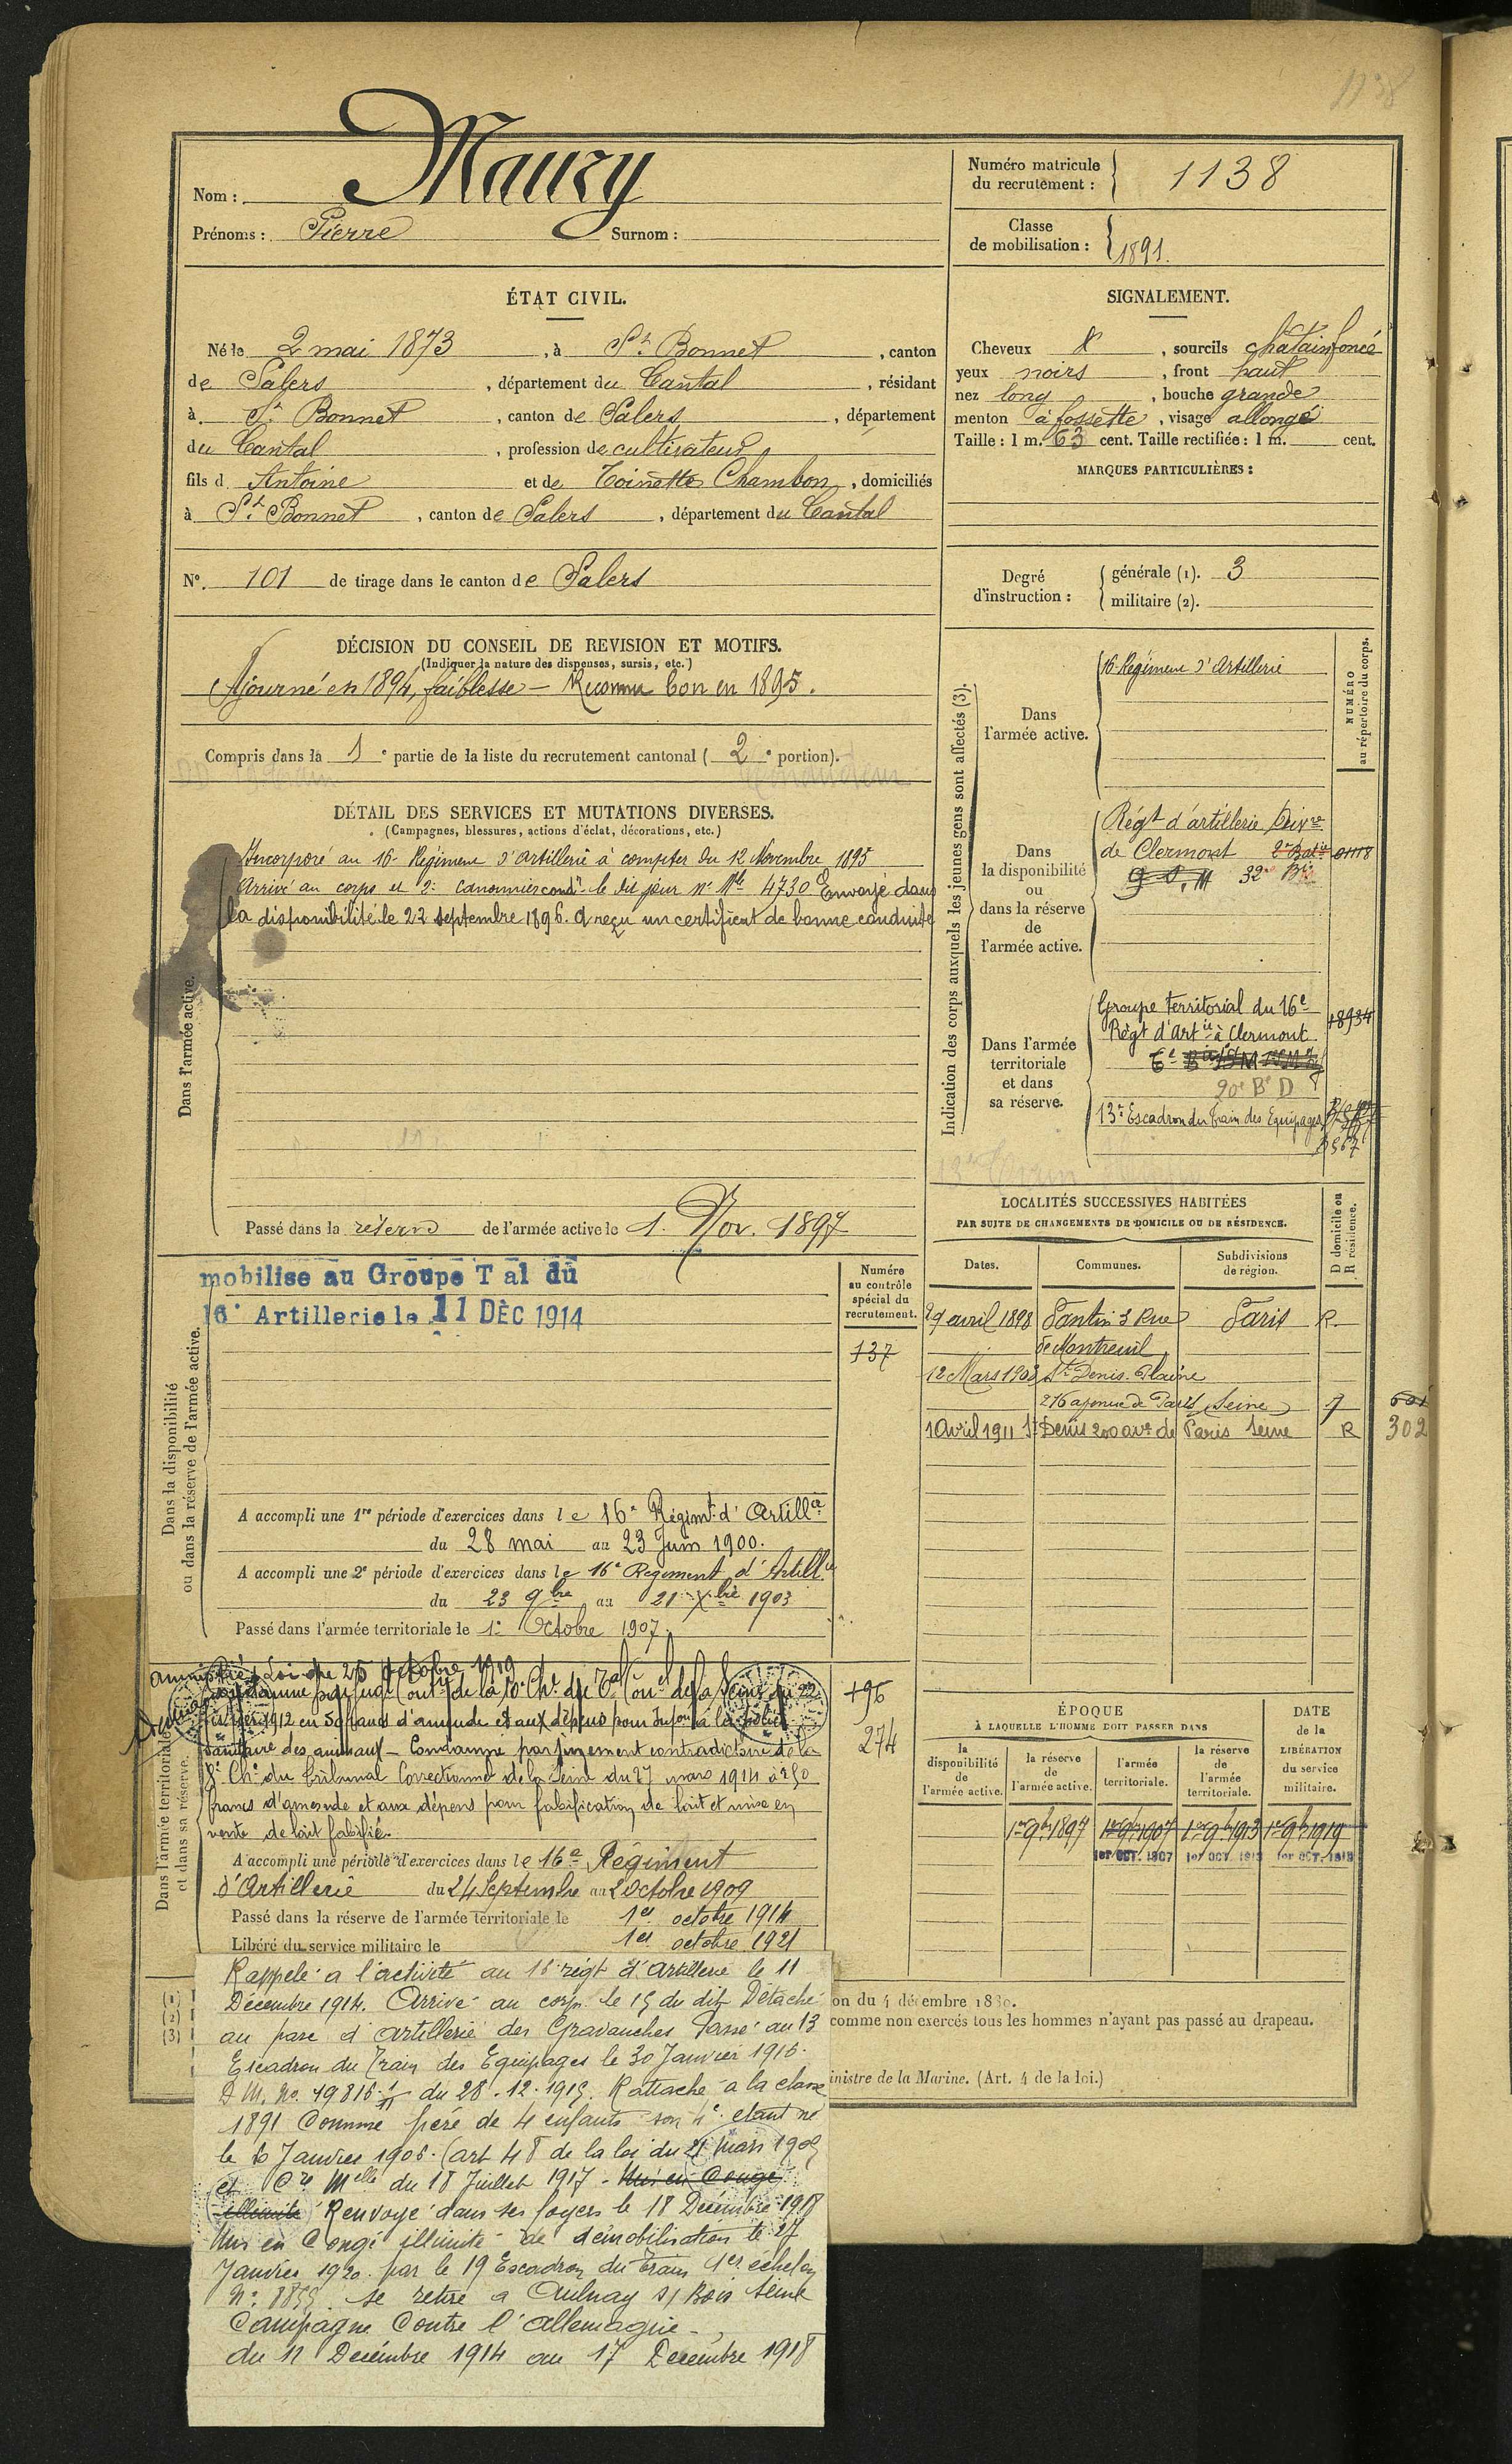 1138
Nom : Maury
Prénoms : Pierre Surnom :
Numéro matricule du recrutement : 1138
Classe de mobilisation : 1891.
ÉTAT CIVIL.
Né le 2 mai 1873, à St Bonnet, canton
de Salers, département du Cantal, résidant
à St Bonnet, canton de Salers, département
du Cantal, profession de cultivateur
fils d Antoine et de Toinette Chambon, domiciliés
à St Bonnet, canton de Salers, département du Cantal
N° 101 de tirage dans le canton de Salers
SIGNALEMENT.
Cheveux &, sourcils châtain foncé
yeux noirs, front haut
nez long, bouche grande
menton à fossette, visage allongé
Taille : 1 m. 63 cent. Taille rectifiée : 1 m. cent.
MARQUES PARTICULIÈRES :
Degré d'instruction : générale (1). 3
militaire (2).
DÉCISION DU CONSEIL DE REVISION ET MOTIFS.
(Indiquer la nature des dispenses, sursis, etc.)
Ajourné en 1894, faiblesse - Reconnu bon en 1895.
Compris dans la 1e partie de la liste du recrutement cantonal (2e portion).
DÉTAIL DES SERVICES ET MUTATIONS DIVERSES.
(Campagnes, blessures, actions d'éclat, décorations, etc.)
Dans l'armée active.
Incorporé au 16e Régiment d'artillerie à compter du 12 Novembre 1895
Arrivé au corps et 2e canonnier condr le dit jour n° Mle 4730 Envoyé dans
la disponibilité le 22 septembre 1896. A reçu un certificat de bonne conduite
Passé dans la réserve de l'armée active le 1. Nov. 1897
Indication des corps auxquels les jeunes gens sont affectés (3).
NUMÉRO au répertoire du corps.
Dans l'armée active.
16e Régiment d'Artillerie
Dans la disponibilité ou dans la réserve de l'armée active.
Régt d'artillerie Divre
de Clermont 2e Batie 01118
32e Bie
Dans l'armée territoriale et dans sa réserve.
Groupe territorial du 16e 18934
Régt d'Artie à Clermont
20e Bie D
13e Escadron du Train des Equipages
LOCALITÉS SUCCESSIVES HABITÉES
PAR SUITE DE CHANGEMENTS DE DOMICILE OU DE RÉSIDENCE.
Dates. Communes. Subdivisions de région. D domicile ou R résidence.
29 avril 1898 Pantin 3 Rue Paris R.
de Montreuil
12 Mars 1903 St Denis. Plaine
216 avenue de Paris Seine
1 Avril 1911 St Denis 200 ave de Paris Seine R 302
Dans la disponibilité ou dans la réserve de l'armée active.
mobilise au Groupe Tal du
16e Artillerie le 11 DÉC 1914
Numéro au contrôle spécial du recrutement.
137
A accompli une 1re période d'exercices dans le 16e Régimt d'Artillie
du 28 mai au 23 Juin 1900.
A accompli une 2e période d'exercices dans le 16e Régiment d'Artillie
du 23 9bre au 21 Xbre 1903
Passé dans l'armée territoriale le 1er Octobre 1907.
Dans l'armée territoriale et dans sa réserve.
Amnistié Loi du 25 octobre 1919
1912 en 50 francs d'amende et aux dépens pour Infon à la police
sanitaire des animaux - Condamné par jugement contradictoire de la
8e Che du Tribunal Correctionnel de la Seine du 27 mars 1914 à 250
francs d'amende et aux dépens pour falsification de lait et mise en
vente de lait falsifié.
196
274
A accompli une période d'exercices dans le 16e Régiment
d'Artillerie du 24 Septembre au 2 Octobre 1909
Passé dans la réserve de l'armée territoriale le 1er octobre 1914
Libéré du service militaire le 1er octobre 1921
ÉPOQUE
À LAQUELLE L'HOMME DOIT PASSER DANS
la disponibilité de l'armée active. la réserve de l'armée active. l'armée territoriale. la réserve de l'armée territoriale.
DATE de la LIBÉRATION du service militaire.
1er 9bre 1897 1er 9bre 1907 1er 9bre 1913 1er 9bre 1919
1er OCT. 1907 1er OCT. 1913 1er OCT. 1919
(1)
(2)
(3)
on du 4 décembre 1830.
comme non exercés tous les hommes n'ayant pas passé au drapeau.
inistre de la Marine. (Art. 4 de la loi.)
Rappelé à l'activité au 16 régt d'Artillerie le 11
Décembre 1914. Arrivé au corps le 15 du dit Détaché
au parc d'artillerie des Gravanches Passé au 13
Escadron du Train des Equipages le 30 Janvier 1916.
D.M. No. 19816 du 28.12.1915. Rattaché à la classe
1891 Comme père de 4 enfants son 4e étant né
le 6 Janvier 1906. (art 48 de la loi du 21 Mars 1905
et Cre Melle du 18 Juillet 1917 - Mis en Congé
illimité Renvoyé dans ses foyers le 18 Décembre 1918
Mis en Congé illimité de démobilisation le 27
Janvier 1920 par le 19 Escadron du Train 4er échelon
N° 8855. se retire à Aulnay s/ Bois Seine
Campagne Contre l'Allemagne -
du 11 Décembre 1914 au 17 Décembre 1918